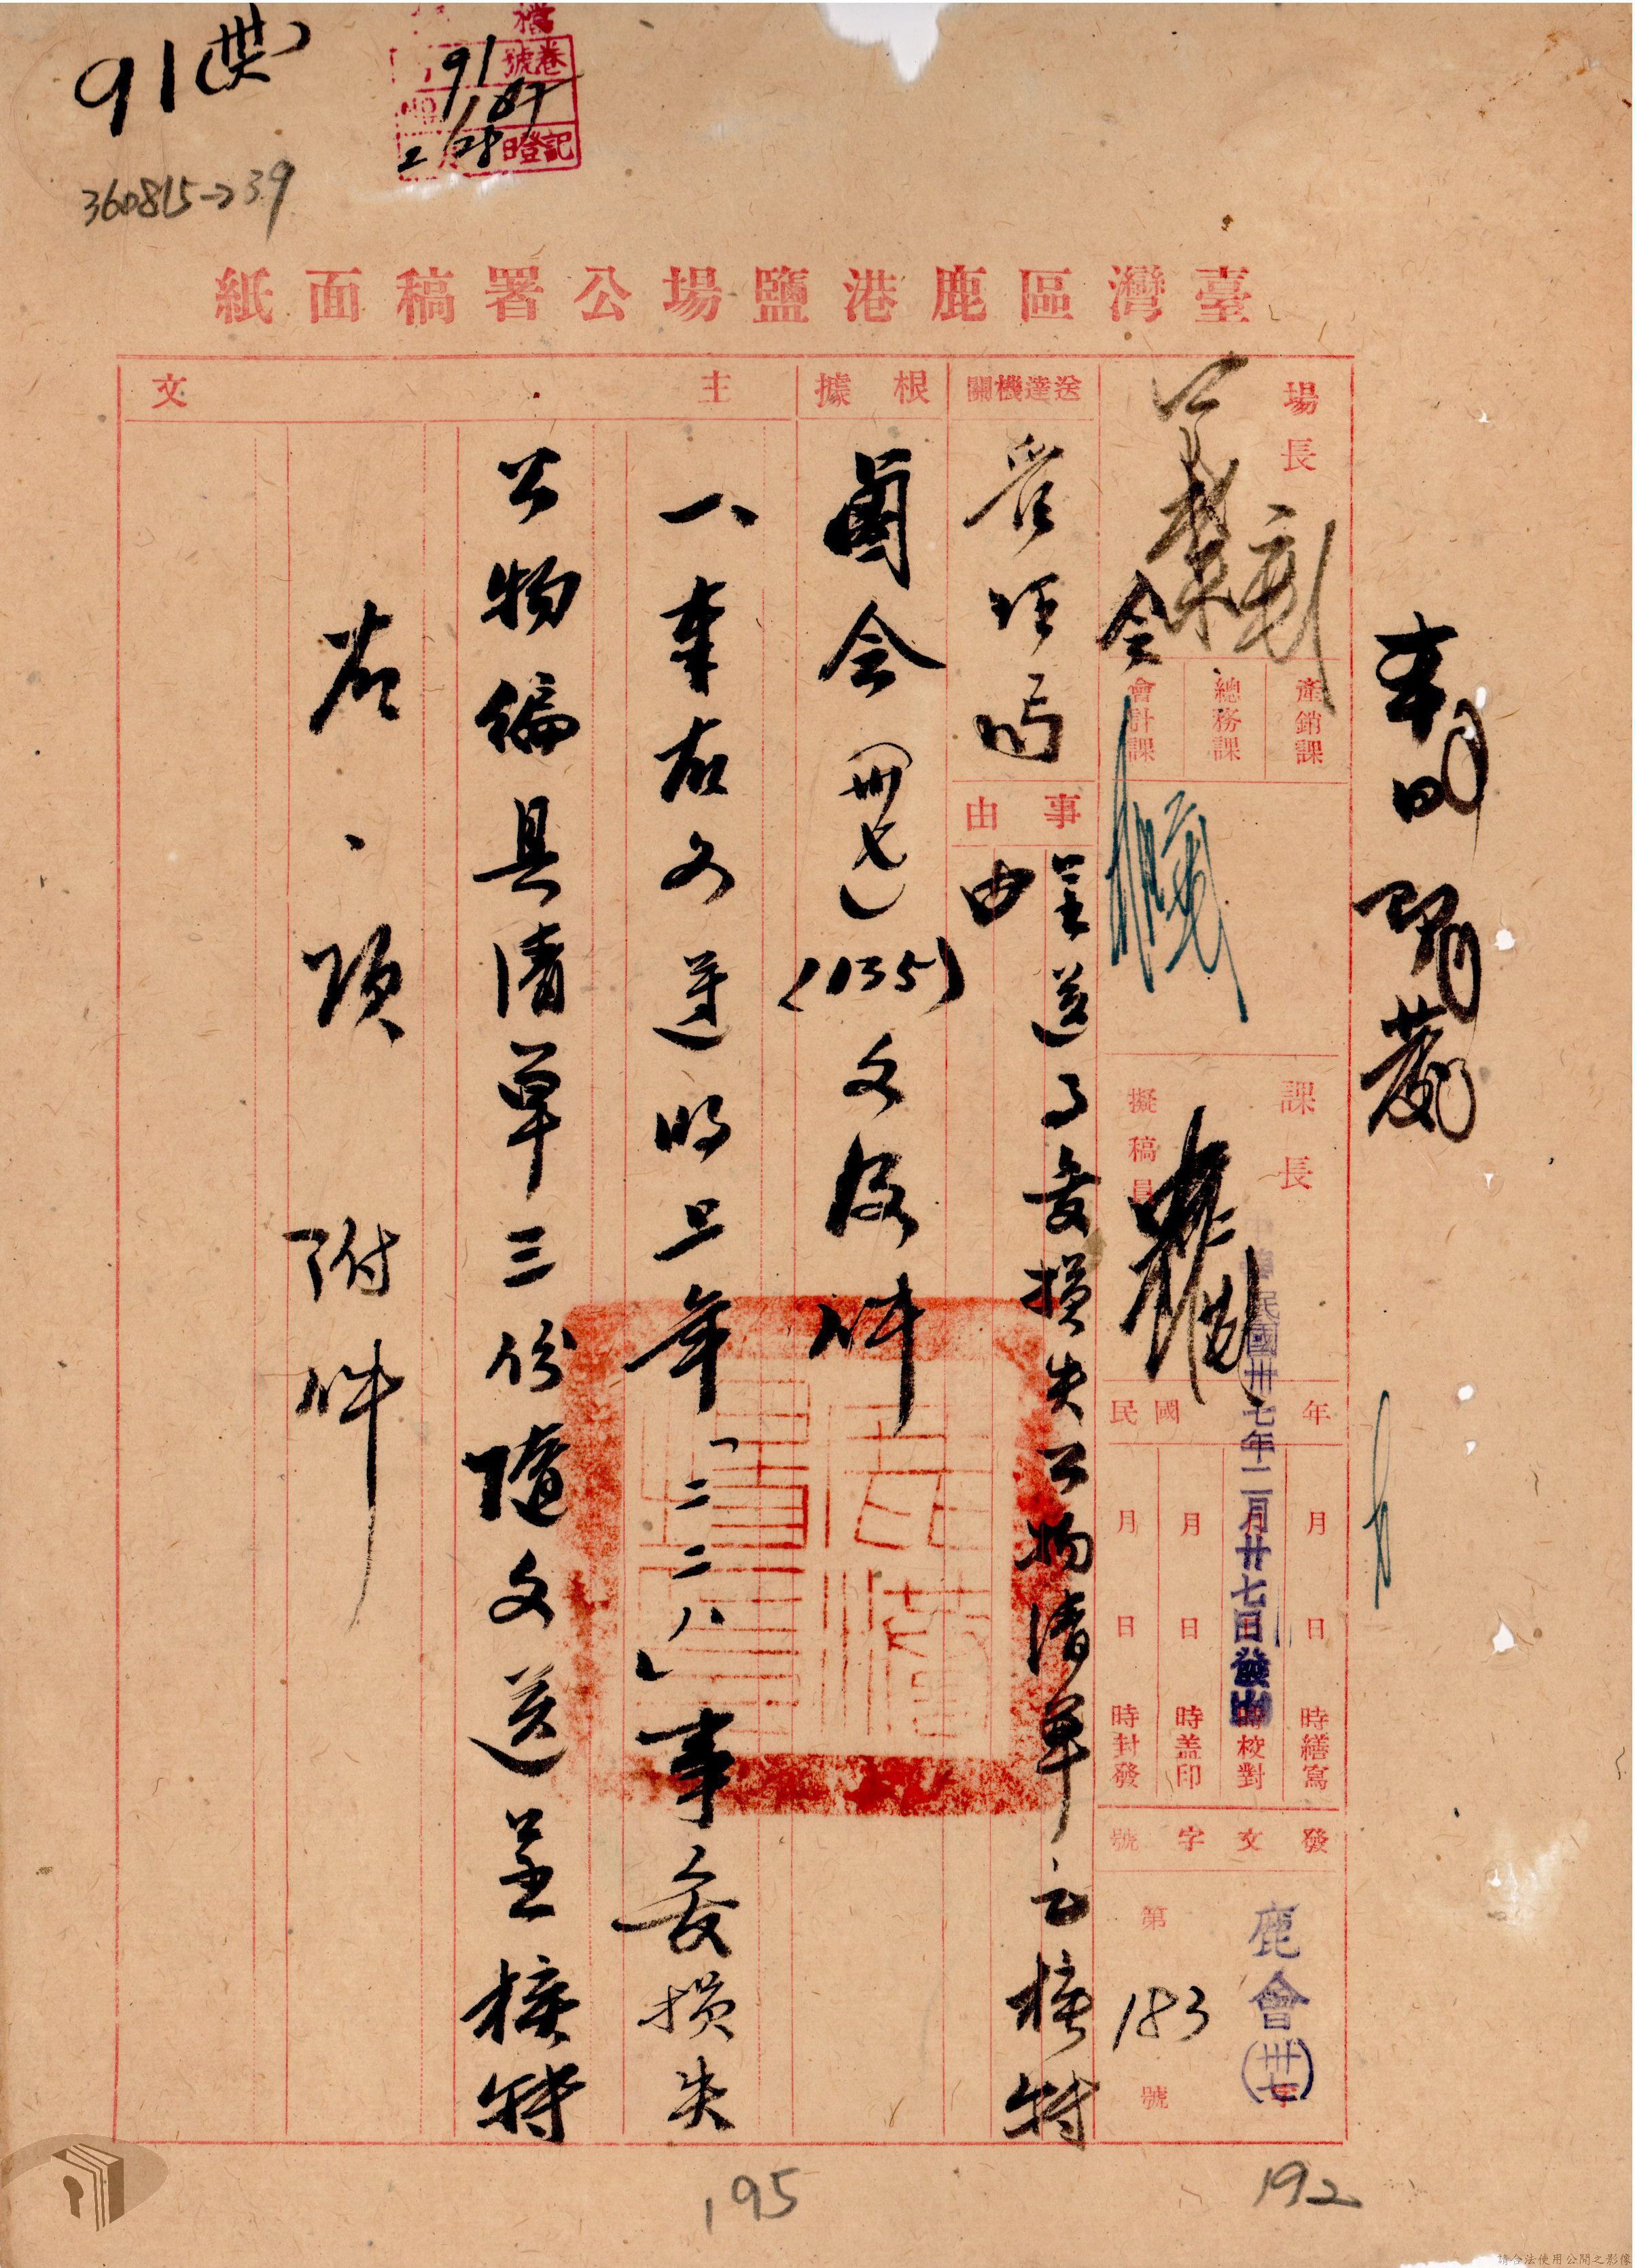 91
檔
卷號 91
NO 187
2月28日登記
360815-239
臺灣區鹿港鹽場公署稿面紙
場長
產銷課
總務課
會計課
會
課長
擬稿員
民國 年
月 日 時繕寫
月 日 時校對
月 日 時蓋印
月 日 時封發
中華民國卅七年二月廿七日發出
發文字號
鹿會(卅七)字
第 183 號
送達機關
管理局
事由
呈送事變損失公物清單乞核轉
由
根據
鹵会(卅七)(135)文役件
主文
一、奉右文遵將上年「二二八」事变損失
公物編具清單三份隨文送呈核轉
右、項 附件
192
195
請合法使用公開之影像